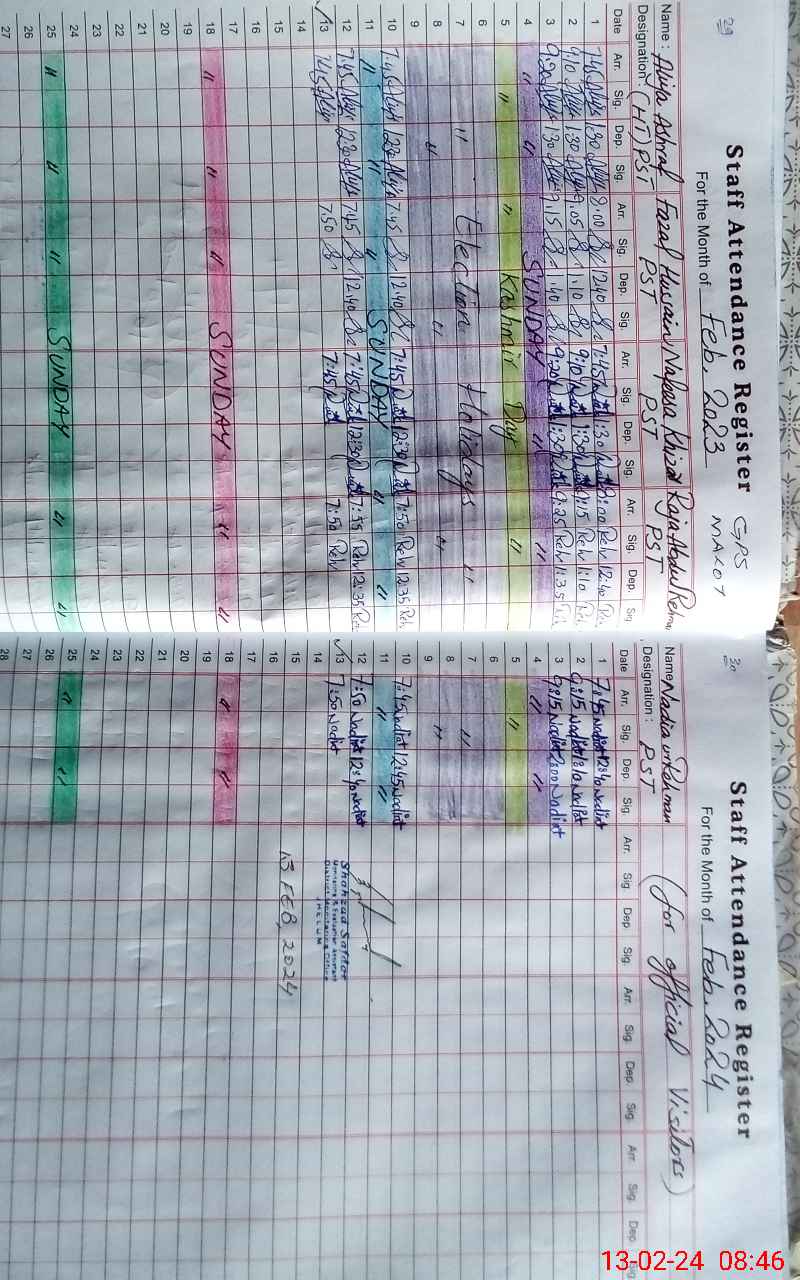 29
Staff Attendance Register GPS MALOT
For the Month of Feb. 2023
Name : Aliya Ashraf Fazal Hussain Nafeesa Raja Abdul Rehman
Designation : (HT) PST PST PST PST
Date Arr. Sig. Dep. Sig. Arr. Sig. Dep. Sig. Arr. Sig. Dep. Sig. Arr. Sig. Dep. Sig.
1 7:45 1:30 8:00 12:40 7:45 1:30 8:00 12:40
2 9:10 1:30 9:05 1:10 9:10 1:30 9:15 Reh 1:10
3 9:20 1:30 9:15 1:40 9:20 1:30 9:25 Reh 1:35
4 " " SUNDAY " "
5 " " Kashmir Day "
6
7 " Election Holidays "
8 " " "
9
10 7:45 12:30 7:45 12:40 7:45 12:30 7:50 Reh 12:35 Reh
11 " " " SUNDAY " "
12 7:45 12:30 7:45 12:40 7:45 12:30 7:55 Reh 12:35 Reh
13 7:45 7:50 7:45 7:50 Reh
14
15
16
17
18 " " " SUNDAY " "
19
20
21
22
23
24
25 " " " SUNDAY " "
26
27
30
Staff Attendance Register
For the Month of Feb. 2024
Name Nadia ur Rehman (for official visitors)
Designation : PST
Date Arr. Sig. Dep. Sig. Arr. Sig. Dep. Sig. Arr. Sig. Dep. Sig. Arr. Sig. Dep. Sig.
1 7:45 Nadia 12:40 Nadia
2 9:15 Nadia 1:10 Nadia
3 9:15 Nadia 2:00 Nadia
4 " "
5 "
6
7 "
8 "
9
10 7:45 Nadia 12:45 Nadia
11 " "
12 7:50 Nadia 12:40 Nadia
13 7:50 Nadia
Shahzad Safdar
Monitoring & Evaluation Assistant
District Monitoring Office
JHELUM
14
15 13 FEB, 2024
16
17
18 " "
19
20
21
22
23
24
25 " "
26
27
28
13-02-24 08:46